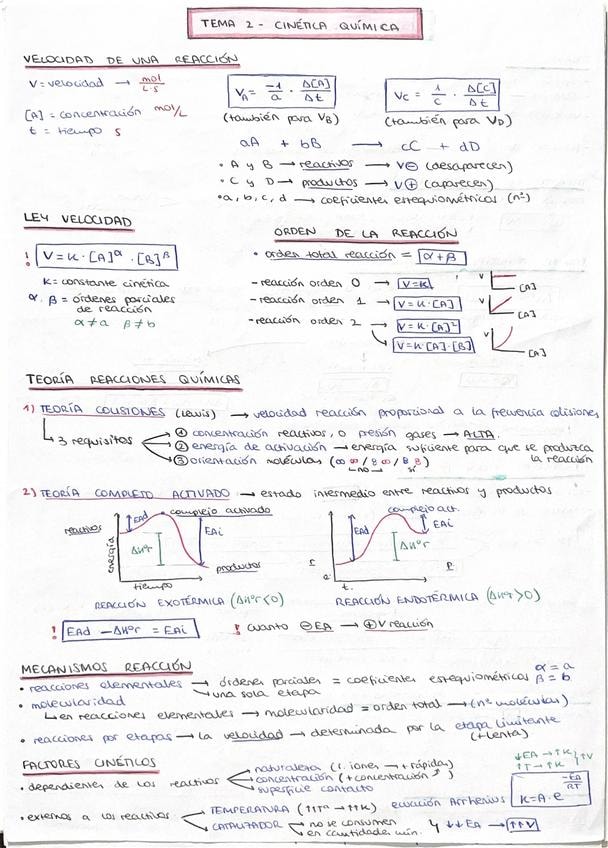 TEMA 2 - CINÉTICA QUÍMICA
VELOCIDAD DE UNA REACCIÓN
V = velocidad → mol/L·s
[A] = concentración mol/L
t = tiempo s
V_A = -1/a · Δ[A]/Δt
(también para V_B)
V_C = 1/c · Δ[C]/Δt
(también para V_D)
aA + bB → cC + dD
• A y B → reactivos → V⊖ (desaparecen)
• C y D → productos → V⊕ (aparecen)
• a, b, c, d → coeficientes estequiométricos (nº)
LEY VELOCIDAD
! V = K · [A]^α · [B]^β
K = constante cinética
α, β = órdenes parciales
de reacción
α ≠ a β ≠ b
ORDEN DE LA REACCIÓN
• orden total reacción = α + β
- reacción orden 0 → V = K
V [A]
- reacción orden 1 → V = K · [A]
V [A]
- reacción orden 2 → V = K · [A]²
V = K · [A] · [B]
V [A]
TEORÍA REACCIONES QUÍMICAS
1) TEORÍA COLISIONES (Lewis) → velocidad reacción proporcional a la frecuencia colisiones
3 requisitos
① concentración reactivos, o presión gases → ALTA.
② energía de activación → energía suficiente para que se produzca
la reacción
③ orientación moléculas (∞ ∞ / 8 ∞ / 8 8)
no sí
2) TEORÍA COMPLEJO ACTIVADO → estado intermedio entre reactivos y productos
reactivos EAd complejo activado EAi ΔHºr productos
energía
tiempo
complejo act.
EAd EAi ΔHºr
e
r P
t.
REACCIÓN EXOTÉRMICA (ΔHºr<0)
REACCIÓN ENDOTÉRMICA (ΔHºr>0)
! EAd - ΔHºr = EAi
! cuanto ⊖EA → ⊕V reacción
MECANISMOS REACCIÓN
• reacciones elementales → órdenes parciales = coeficientes estequiométricos α = a
β = b
una sola etapa
• molecularidad
en reacciones elementales → molecularidad = orden total → (nº moléculas)
• reacciones por etapas → la velocidad → determinada por la etapa limitante
(+ lenta)
FACTORES CINÉTICOS
• dependientes de los reactivos
naturaleza (r. iones → + rápida)
concentración (+ concentración ↑)
superficie contacto
↓EA → ↑K
↑T → ↑K
↑V
• externos a los reactivos
TEMPERATURA (↑↑Tª → ↑↑K) ecuación Arrhenius
K = A · e^(-EA/RT)
CATALIZADOR
no se consumen
en cantidades mín.
↓↓EA → ↑↑V